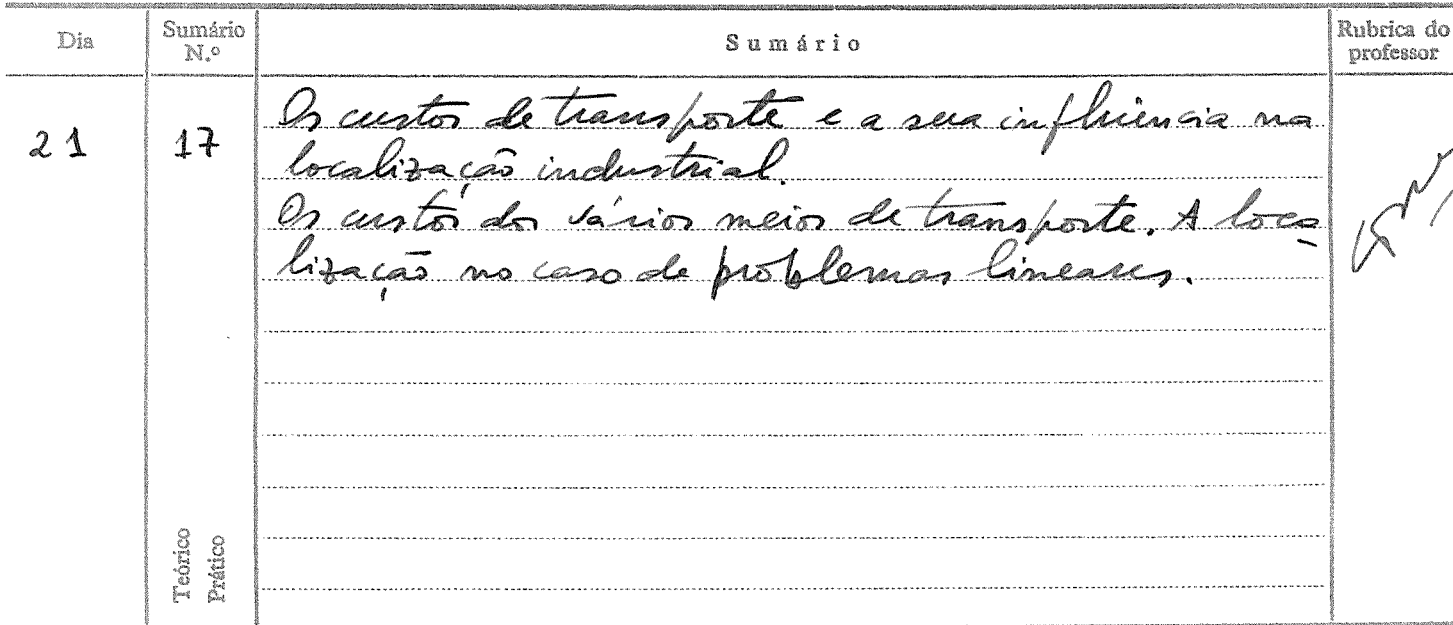 Dia
Sumário
N.º
Sumário
Rubrica do
professor
21
17
Os custos de transporte e a sua influência na
localização industrial.
Os custos dos vários meios de transporte. A loca
lização no caso de problemas lineares.
Teórico
Prático